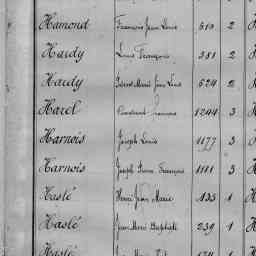 Hamond François Jean Louis 610 2 H
Hardy Louis François 381 2 H
Hardy Pierre Marie Jean Louis 624 2 H
Harel Constant François 1244 3 H
Harnois Joseph Louis 1177 3 H
Harnois Joseph Pierre François 1111 3 H
Haslé Henri Jean Marie 133 1 H
Haslé Jean Marie Baptiste 239 1 H
Haslé Jean Marie 1